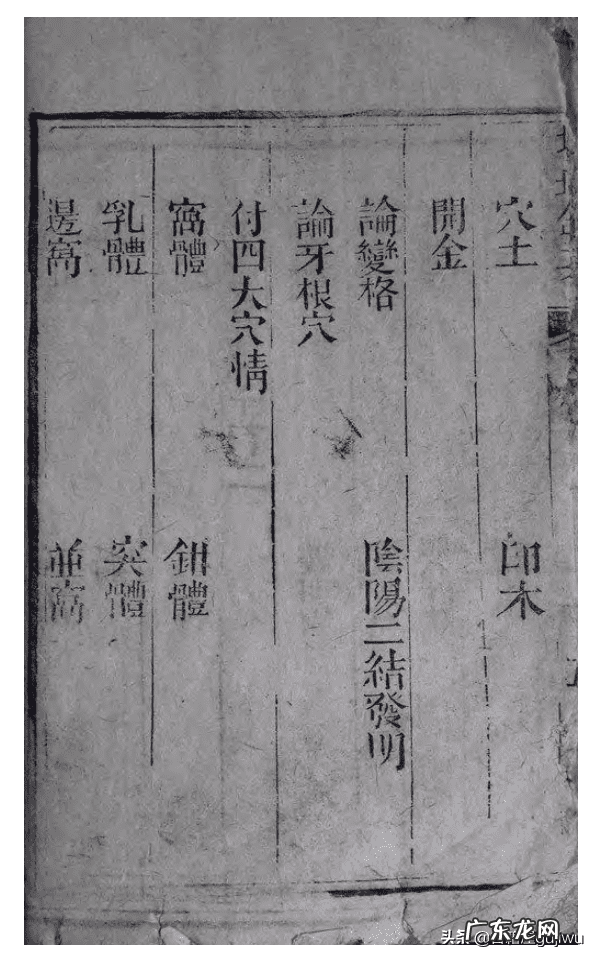 穴土 印木
開金
論變格 陰陽二結發明
論牙根穴
付四大穴情
窩體 鉗體
乳體 突體
邊窩 並窩
广东龙网
头条